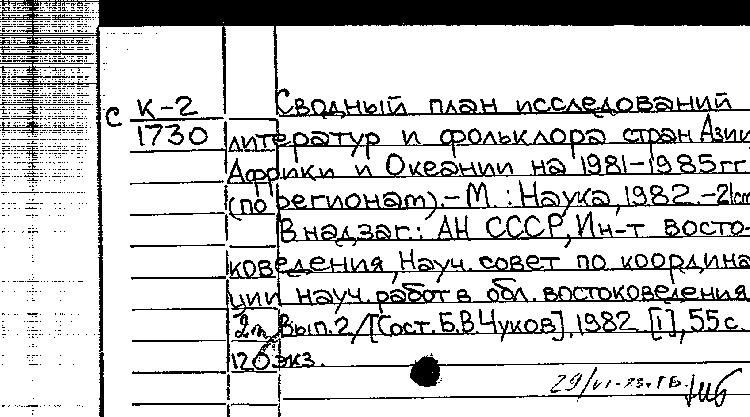 с К-2 Сводный план исследований
1730 литератур и фольклора стран Азии
Африки и Океании на 1981-1985гг
(по регионам).-М.: Наука, 1982.-21cm
В надзаг.: АН СССР, Ин-т восто-
коведения, Науч. совет по координа
ции науч. работ в обл. востоковедения
2т Вып.2/[Сост. Б.В.Чуков]. 1982 [1], 55с.
120экз.
29/VI-83г.